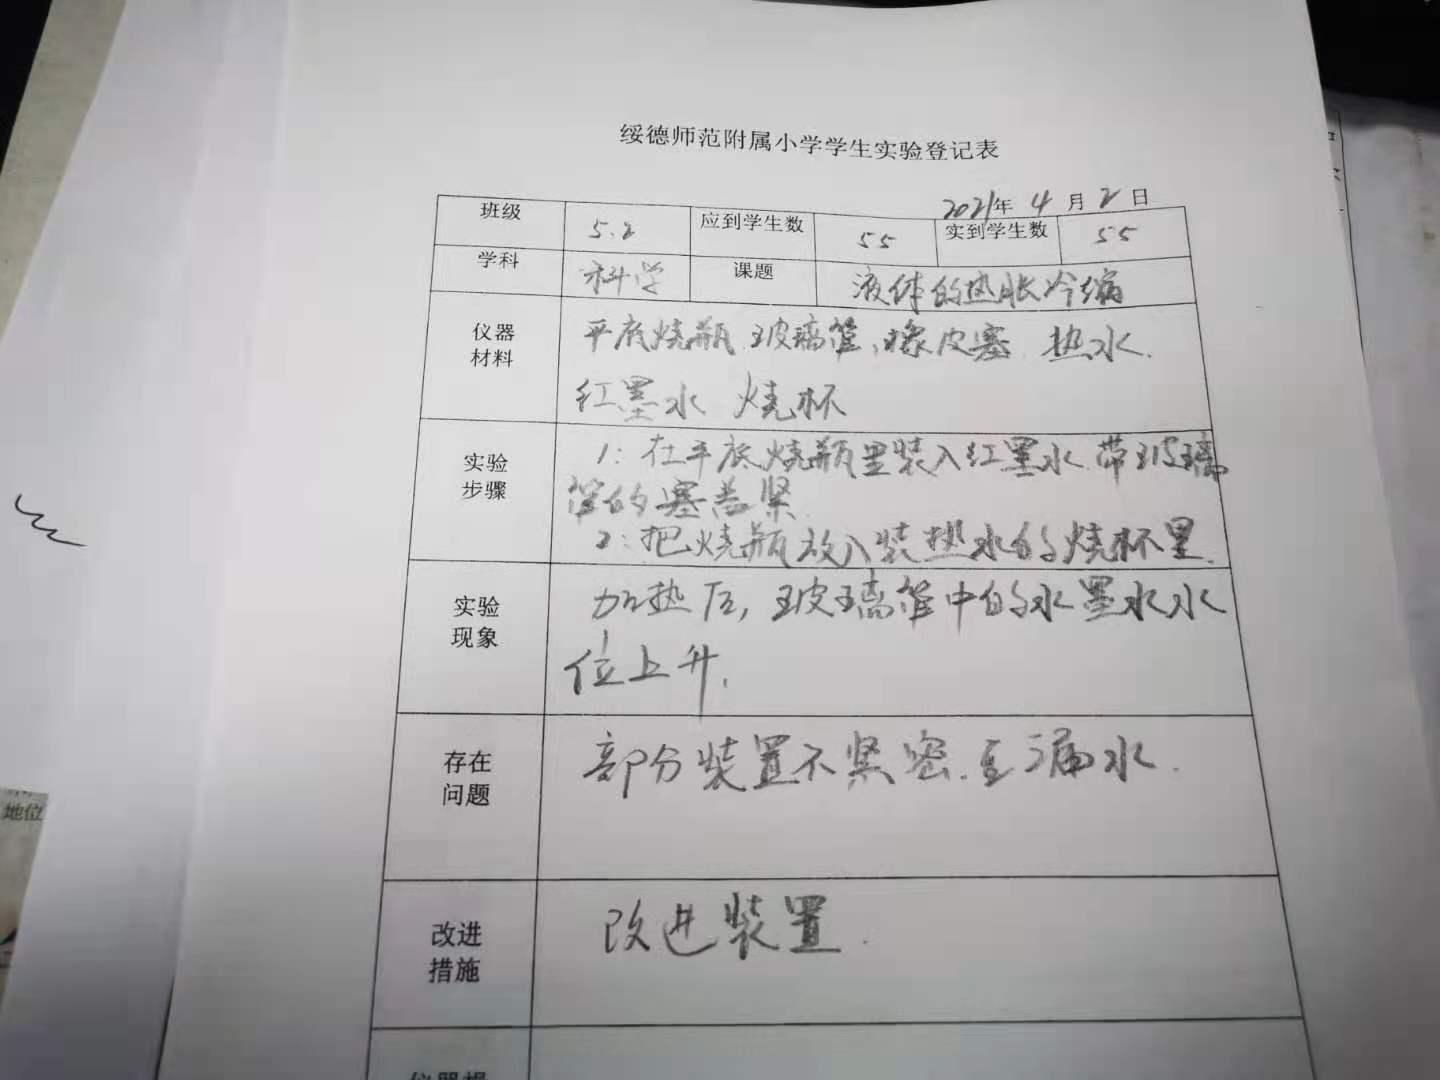 绥德师范附属小学学生实验登记表
2021年 4 月 2 日
班级 5.2 应到学生数 55 实到学生数 55
学科 科学 课题 液体的热胀冷缩
仪器
材料
平底烧瓶 玻璃管、橡皮塞 热水.
红墨水 烧杯
实验
步骤
1:在平底烧瓶里装入红墨水.带玻璃
管的塞盖紧
2:把烧瓶放入装热水的烧杯里.
实验
现象
加热后,玻璃管中的水墨水水
位上升.
存在
问题
部分装置不紧密. 漏水.
改进
措施
改进装置.
地位